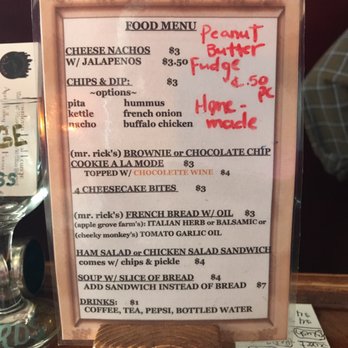 FOOD MENU
Peanut
Butter
Fudge
.50
pc
Home-
made
CHEESE NACHOS $3
W/ JALAPENOS $3.50
CHIPS & DIP: $3
~options~
pita hummus
kettle french onion
nacho buffalo chicken
(mr. rick's) BROWNIE or CHOCOLATE CHIP
COOKIE A LA MODE $3
TOPPED W/ CHOCOLETTE WINE $4
4 CHEESECAKE BITES $3
(mr. rick's) FRENCH BREAD W/ OIL $3
(apple grove farm's): ITALIAN HERB or BALSAMIC or
(cheeky monkey's) TOMATO GARLIC OIL
HAM SALAD or CHICKEN SALAD SANDWICH
comes w/ chips & pickle $4
SOUP W/ SLICE OF BREAD $4
ADD SANDWICH INSTEAD OF BREAD $7
DRINKS: $1
COFFEE, TEA, PEPSI, BOTTLED WATER